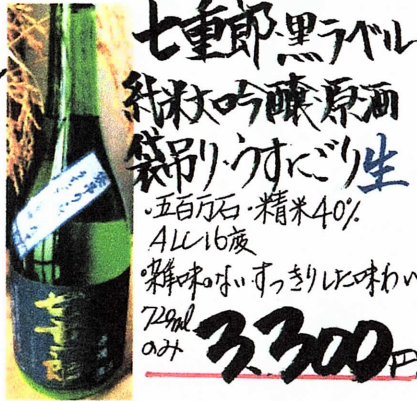 七重郎・黒ラベル
純米大吟醸・原酒
袋吊り・うすにごり生
・五百万石・精米40%
ALC16度
・雑味のないすっきりした味わい
720ml
のみ
3,300円